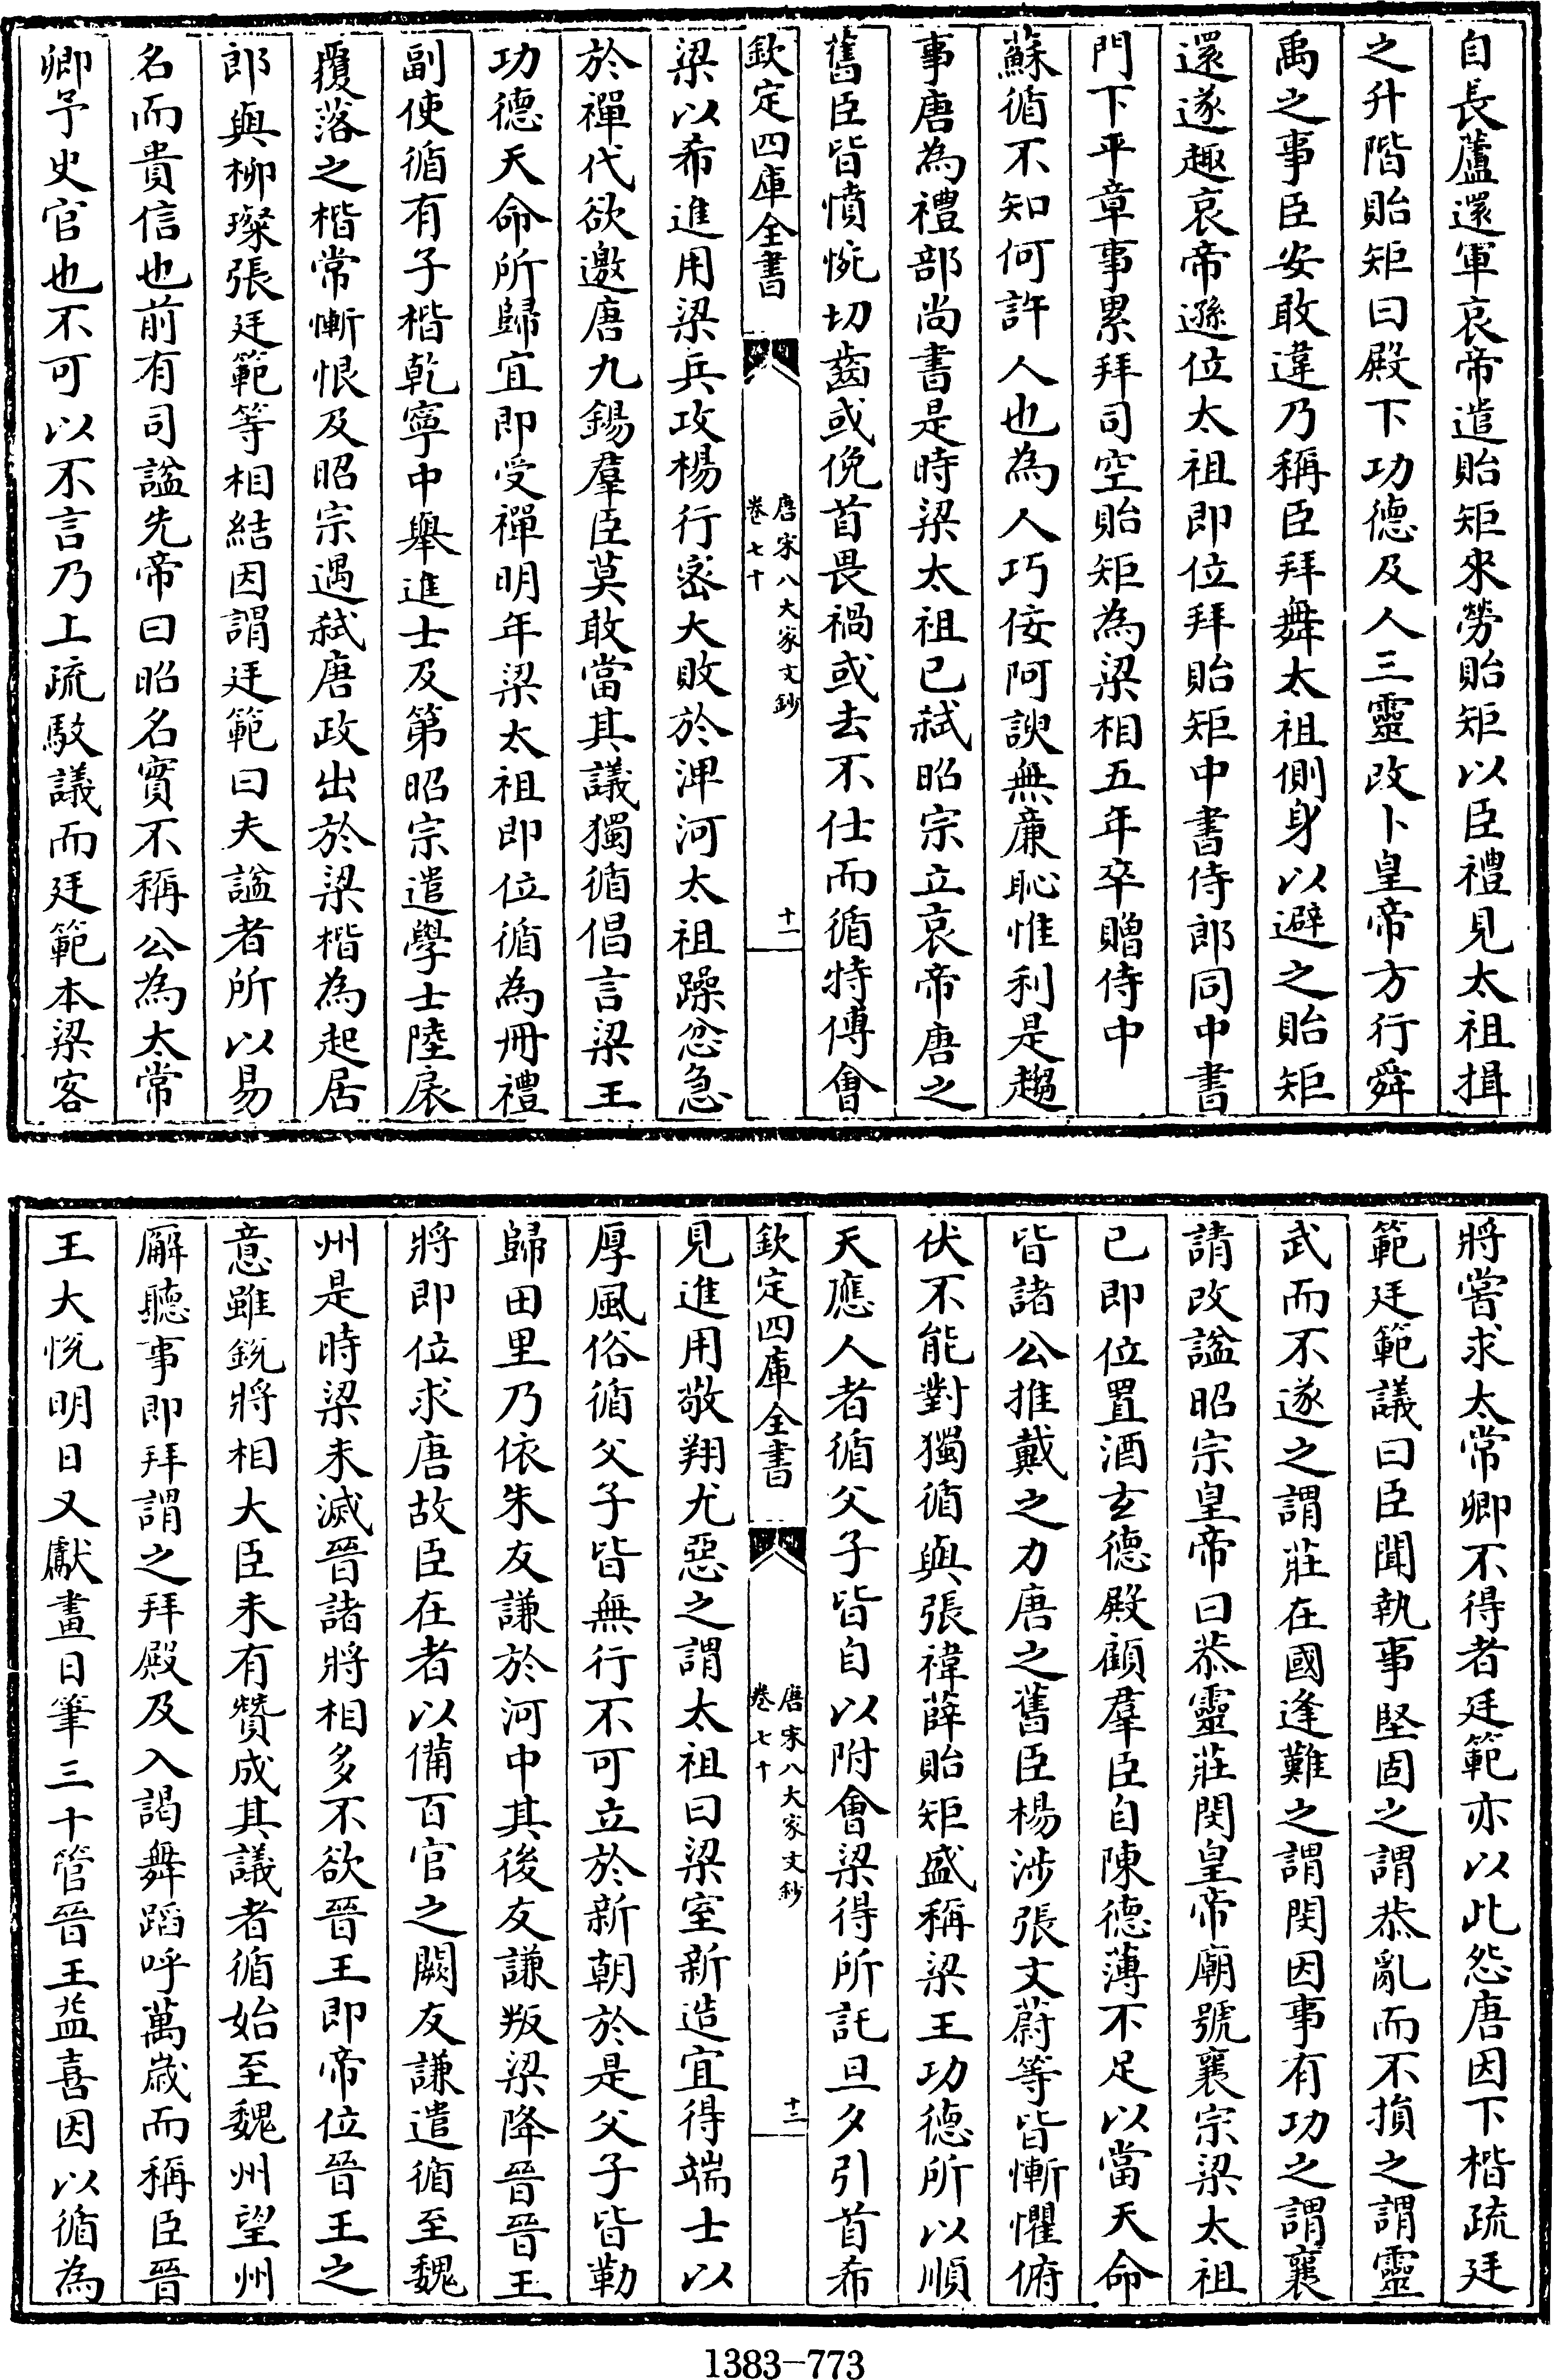 自長蘆還軍哀帝遣貽矩來勞貽矩以臣禮見太祖揖
之升階貽矩曰殿下功德及人三靈改卜皇帝方行舜
禹之事臣安敢違乃稱臣拜舞太祖側身以避之貽矩
還遂趣哀帝遜位太祖即位拜貽矩中書侍郎同中書
門下平章事累拜司空貽矩為梁相五年卒贈侍中
蘇循不知何許人也為人巧佞阿諛無廉恥惟利是趨
事唐為禮部尚書是時梁太祖已弒昭宗立哀帝唐之
舊臣皆憤惋切齒或俛首畏禍或去不仕而循特傅會
欽定四庫全書
唐宋八大家文鈔
卷七十
十一
梁以希進用梁兵攻楊行密大敗於渒河太祖躁忿急
於禪代欲邀唐九錫羣臣莫敢當其議獨循倡言梁王
功德天命所歸宜即受禪明年梁太祖即位循為冊禮
副使循有子楷乾寧中舉進士及第昭宗遣學士陸扆
覆落之楷常慚恨及昭宗遇弒唐政出於梁楷為起居
郎與柳璨張廷範等相結因謂廷範曰夫諡者所以易
名而貴信也前有司諡先帝曰昭名實不稱公為太常
卿予史官也不可以不言乃上疏駁議而廷範本梁客
將嘗求太常卿不得者廷範亦以此怨唐因下楷疏廷
範廷範議曰臣聞執事堅固之謂恭亂而不損之謂靈
武而不遂之謂莊在國逢難之謂閔因事有功之謂襄
請改諡昭宗皇帝曰恭靈莊閔皇帝廟號襄宗梁太祖
已即位置酒玄德殿顧羣臣自陳德薄不足以當天命
皆諸公推戴之力唐之舊臣楊涉張文蔚等皆慚懼俯
伏不能對獨循與張禕薛貽矩盛稱梁王功德所以順
天應人者循父子皆自以附會梁得所託旦夕引首希
欽定四庫全書
唐宋八大家文鈔
卷七十
十二
見進用敬翔尤惡之謂太祖曰梁室新造宜得端士以
厚風俗循父子皆無行不可立於新朝於是父子皆勒
歸田里乃依朱友謙於河中其後友謙叛梁降晉晉王
將即位求唐故臣在者以備百官之闕友謙遣循至魏
州是時梁未滅晉諸將相多不欲晉王即帝位晉王之
意雖銳將相大臣未有贊成其議者循始至魏州望州
廨聽事即拜謂之拜殿及入謁舞蹈呼萬歲而稱臣晉
王大悅明日又獻畫日筆三十管晉王益喜因以循為
1383-773